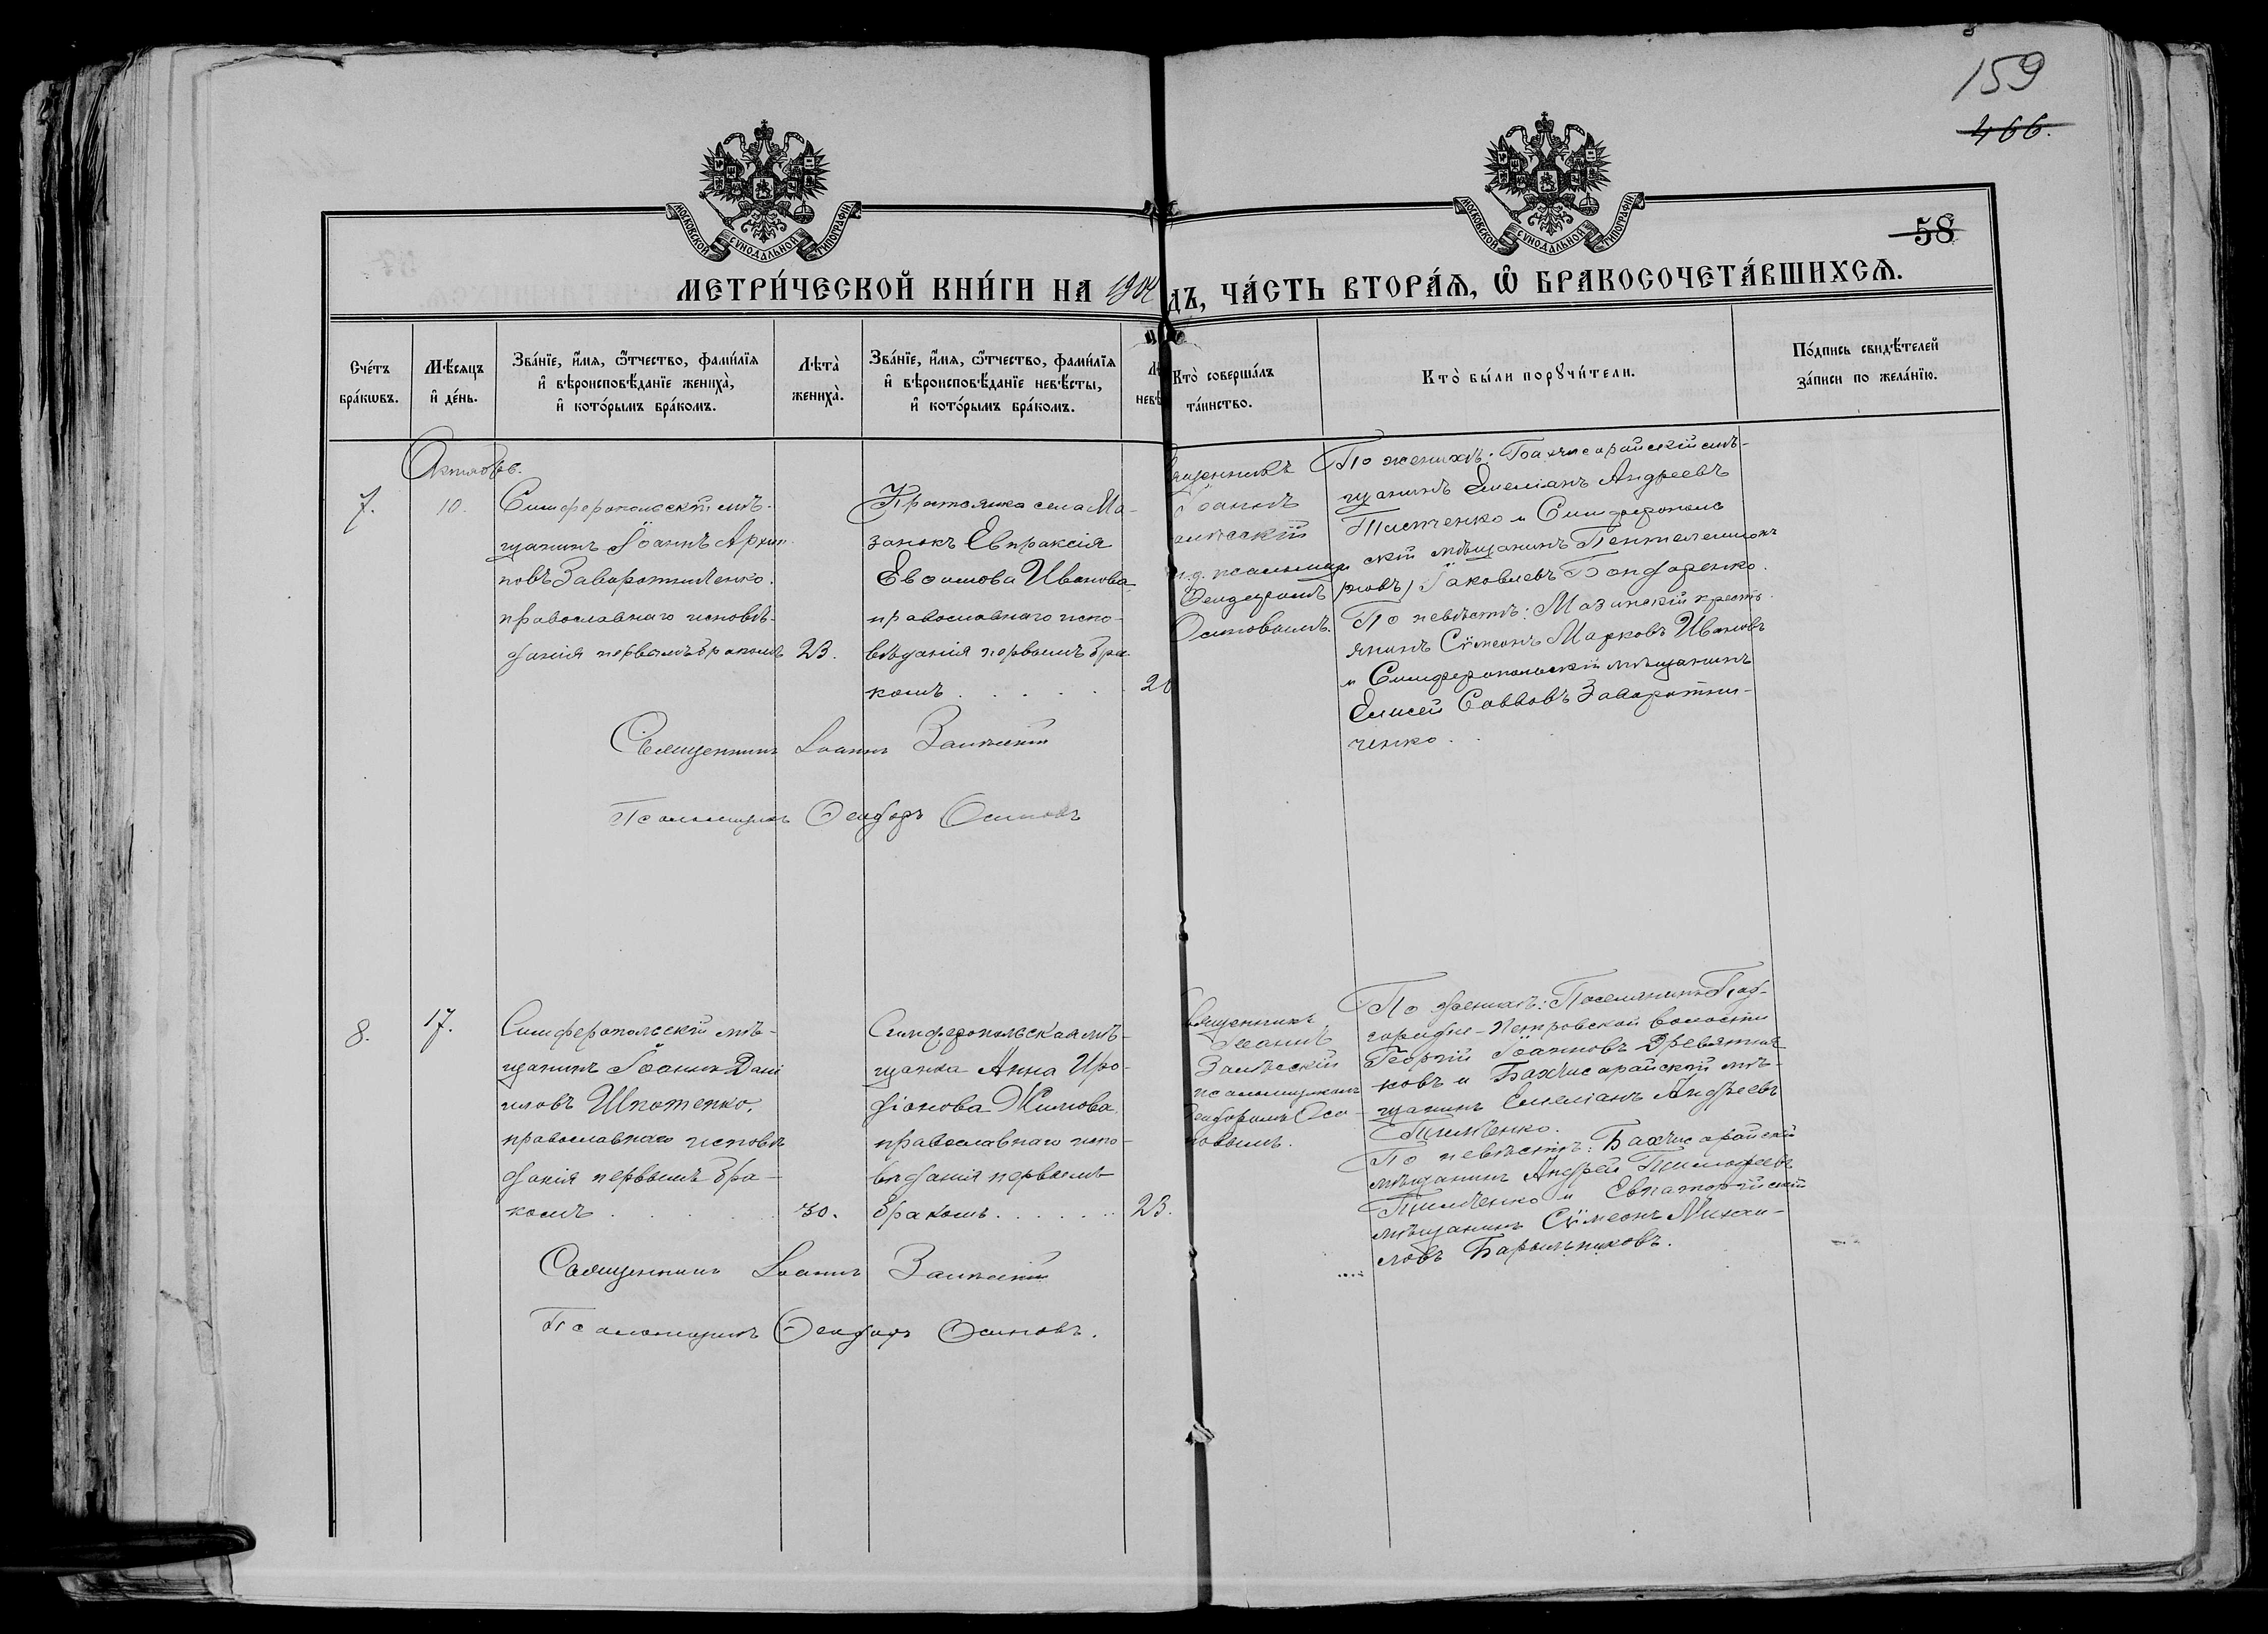 159
466.
МОСКОВСКОЙ СѴНОДАЛЬНОЙ ТИПОГРАФІИ
МОСКОВСКОЙ СѴНОДАЛЬНОЙ ТИПОГРАФІИ
58
МЕТРИ́ЧЕСКОЙ КНИ́ГИ НА 1904 ДЪ, ЧА́СТЬ ВТОРА́Я, Ѡ҆ БРАКОСОЧЕТА́ВШИХСЯ.
Сче́тъ
бра́кѡвъ.
Мѣ́сяцъ
и҆ де́нь.
Зва́нїе, и҆́мя, ѻ҆́тчество, фами́лїя
и҆ вѣроисповѣ́данїе жениха̀,
и҆ кото́рымъ бра́комъ.
Лѣта̀
жениха̀.
Зва́нїе, и҆́мя, ѻ҆́тчество, фами́лїя
и҆ вѣроисповѣ́данїе невѣ́сты,
и҆ кото́рымъ бра́комъ.
Лѣ
невѣ
Кто̀ соверша́лъ
та́инство.
Кто̀ бы́ли порꙋчи́тели.
По́дпись свидѣ́телей
за́писи по жела́нїю.
Октябрь.
7.
10.
Симферопольскій мѣ-
щанинъ Іоаннъ Архип-
повъ Заворотниченко.
православнаго исповѣ-
данія первымъ бракомъ
23.
Крестьянка села Ма-
занокъ Евпраксія
Евфимова Иванова
православнаго испо-
вѣданія первымъ бра
комъ . . . . .
20
ященникъ
оаннъ
и.д. псаломщи
Феодоромъ
Осиповымъ.
По женихѣ: Бахчисарайскій мѣ-
щанинъ Емеліанъ Андреевъ
Тимченко и Симферополь
скій мѣщанинъ Пентелеимонъ
Іаковлевъ Бондаренко.
По невѣстѣ: Мазанскій кресть
янинъ Сѵмеонъ Марковъ Ивановъ
и Симферопольскій мѣщанинъ
Елисей Савковъ Заворотни-
ченко.
Священникъ Іоаннъ
Псаломщикъ Феодоръ Осиповъ
8.
17.
Симферопольскій мѣ-
щанинъ Іоаннъ Дани
иловъ Шпотенко.
православнаго исповѣ
данія первымъ бра-
комъ
30.
Симферопольская мѣ-
щанка Анна Иро-
діонова Жилова
православнаго испо-
вѣданія первымъ
бракомъ . . . . .
23.
вященникъ
Іоаннъ
псаломщикомъ
Феодоромъ Оси-
повымъ.
По женихѣ: Поселянинъ
Петровской волости
Георгій Іоанновъ Древятни-
ковъ и Бахчисарайскій мѣ-
щанинъ Емеліанъ Андреевъ
Тимченко.
По невѣстѣ: Бахчисарайскій
мѣщанинъ Андрей Тимофеевъ
Тимченко и Евпаторійскій
мѣщанинъ Сѵмеонъ Михаи-
ловъ Барыльниковъ.
Священникъ Іоаннъ
Псаломщикъ Феодоръ Осиповъ.